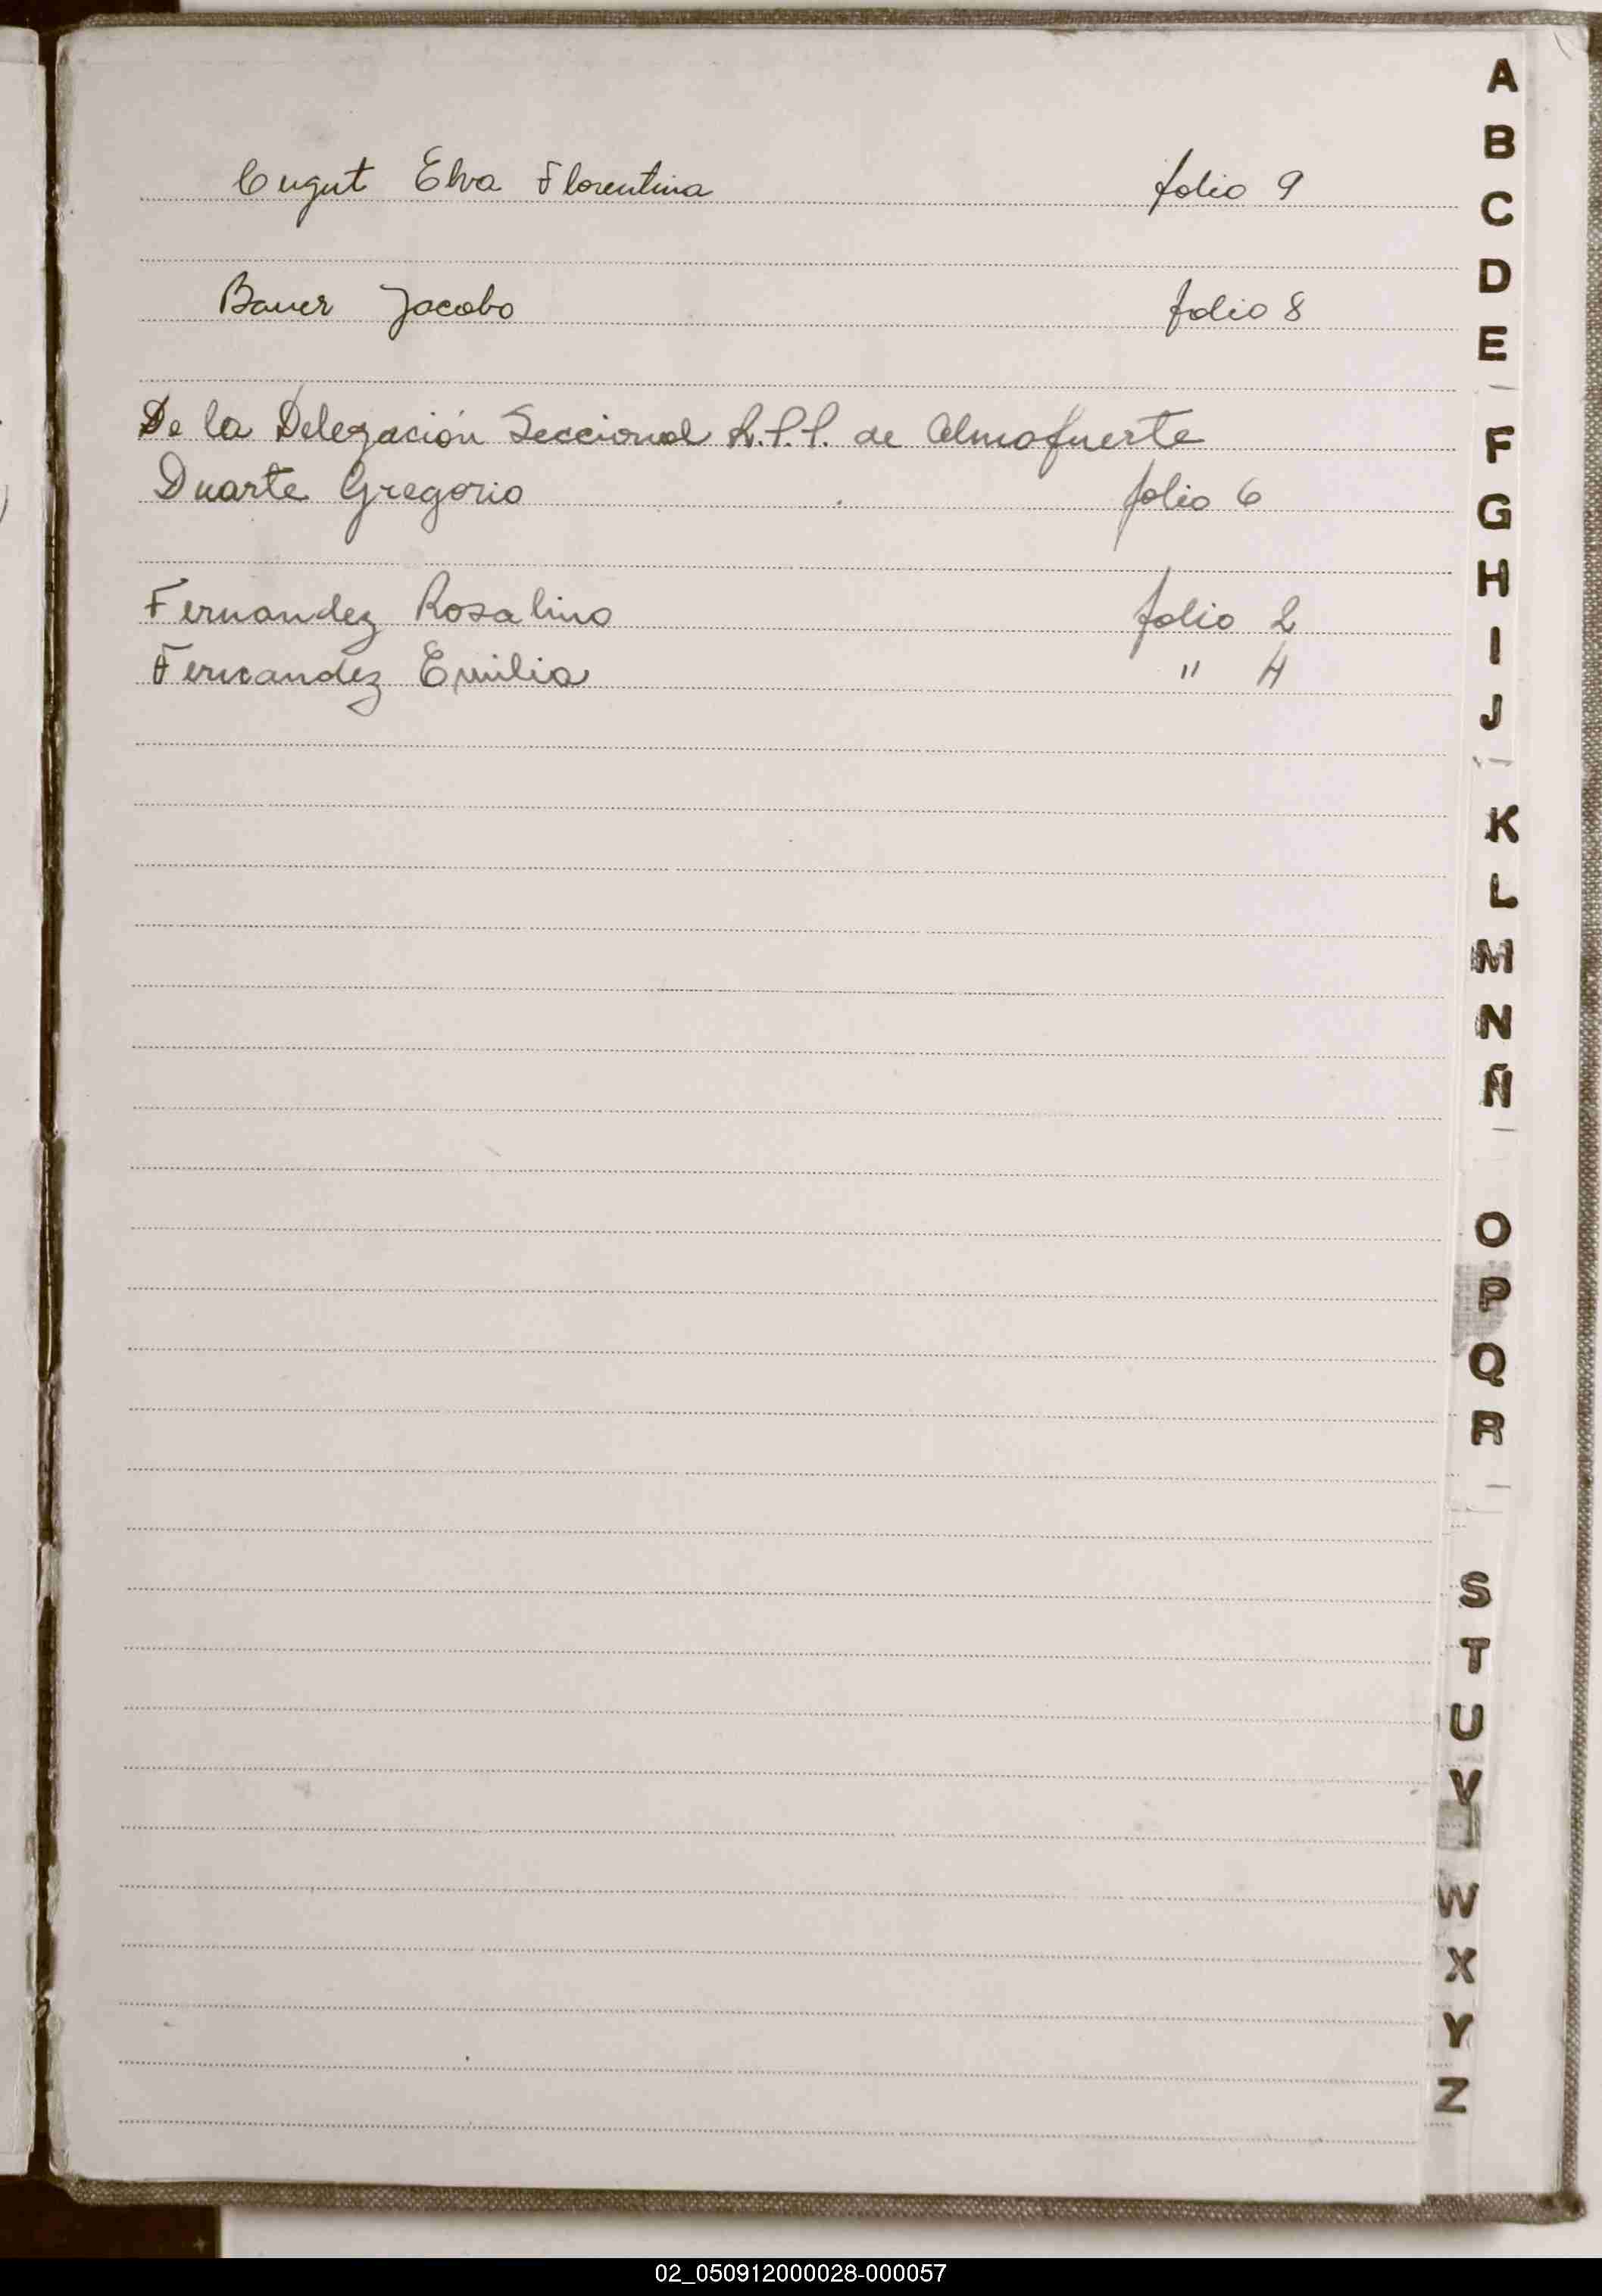 Cugut Elva Florentina folio 9
Bauer Jacobo folio 8
De la Delegación Seccional R.P.P. de Almafuerte
Duarte Gregorio folio 6
Fernandez Rosalino folio 2
Fernandez Emilia " 4
A
B
C
D
E
F
G
H
I
J
K
L
M
N
Ñ
O
P
Q
R
S
T
U
V
W
X
Y
Z
02_050912000028-000057